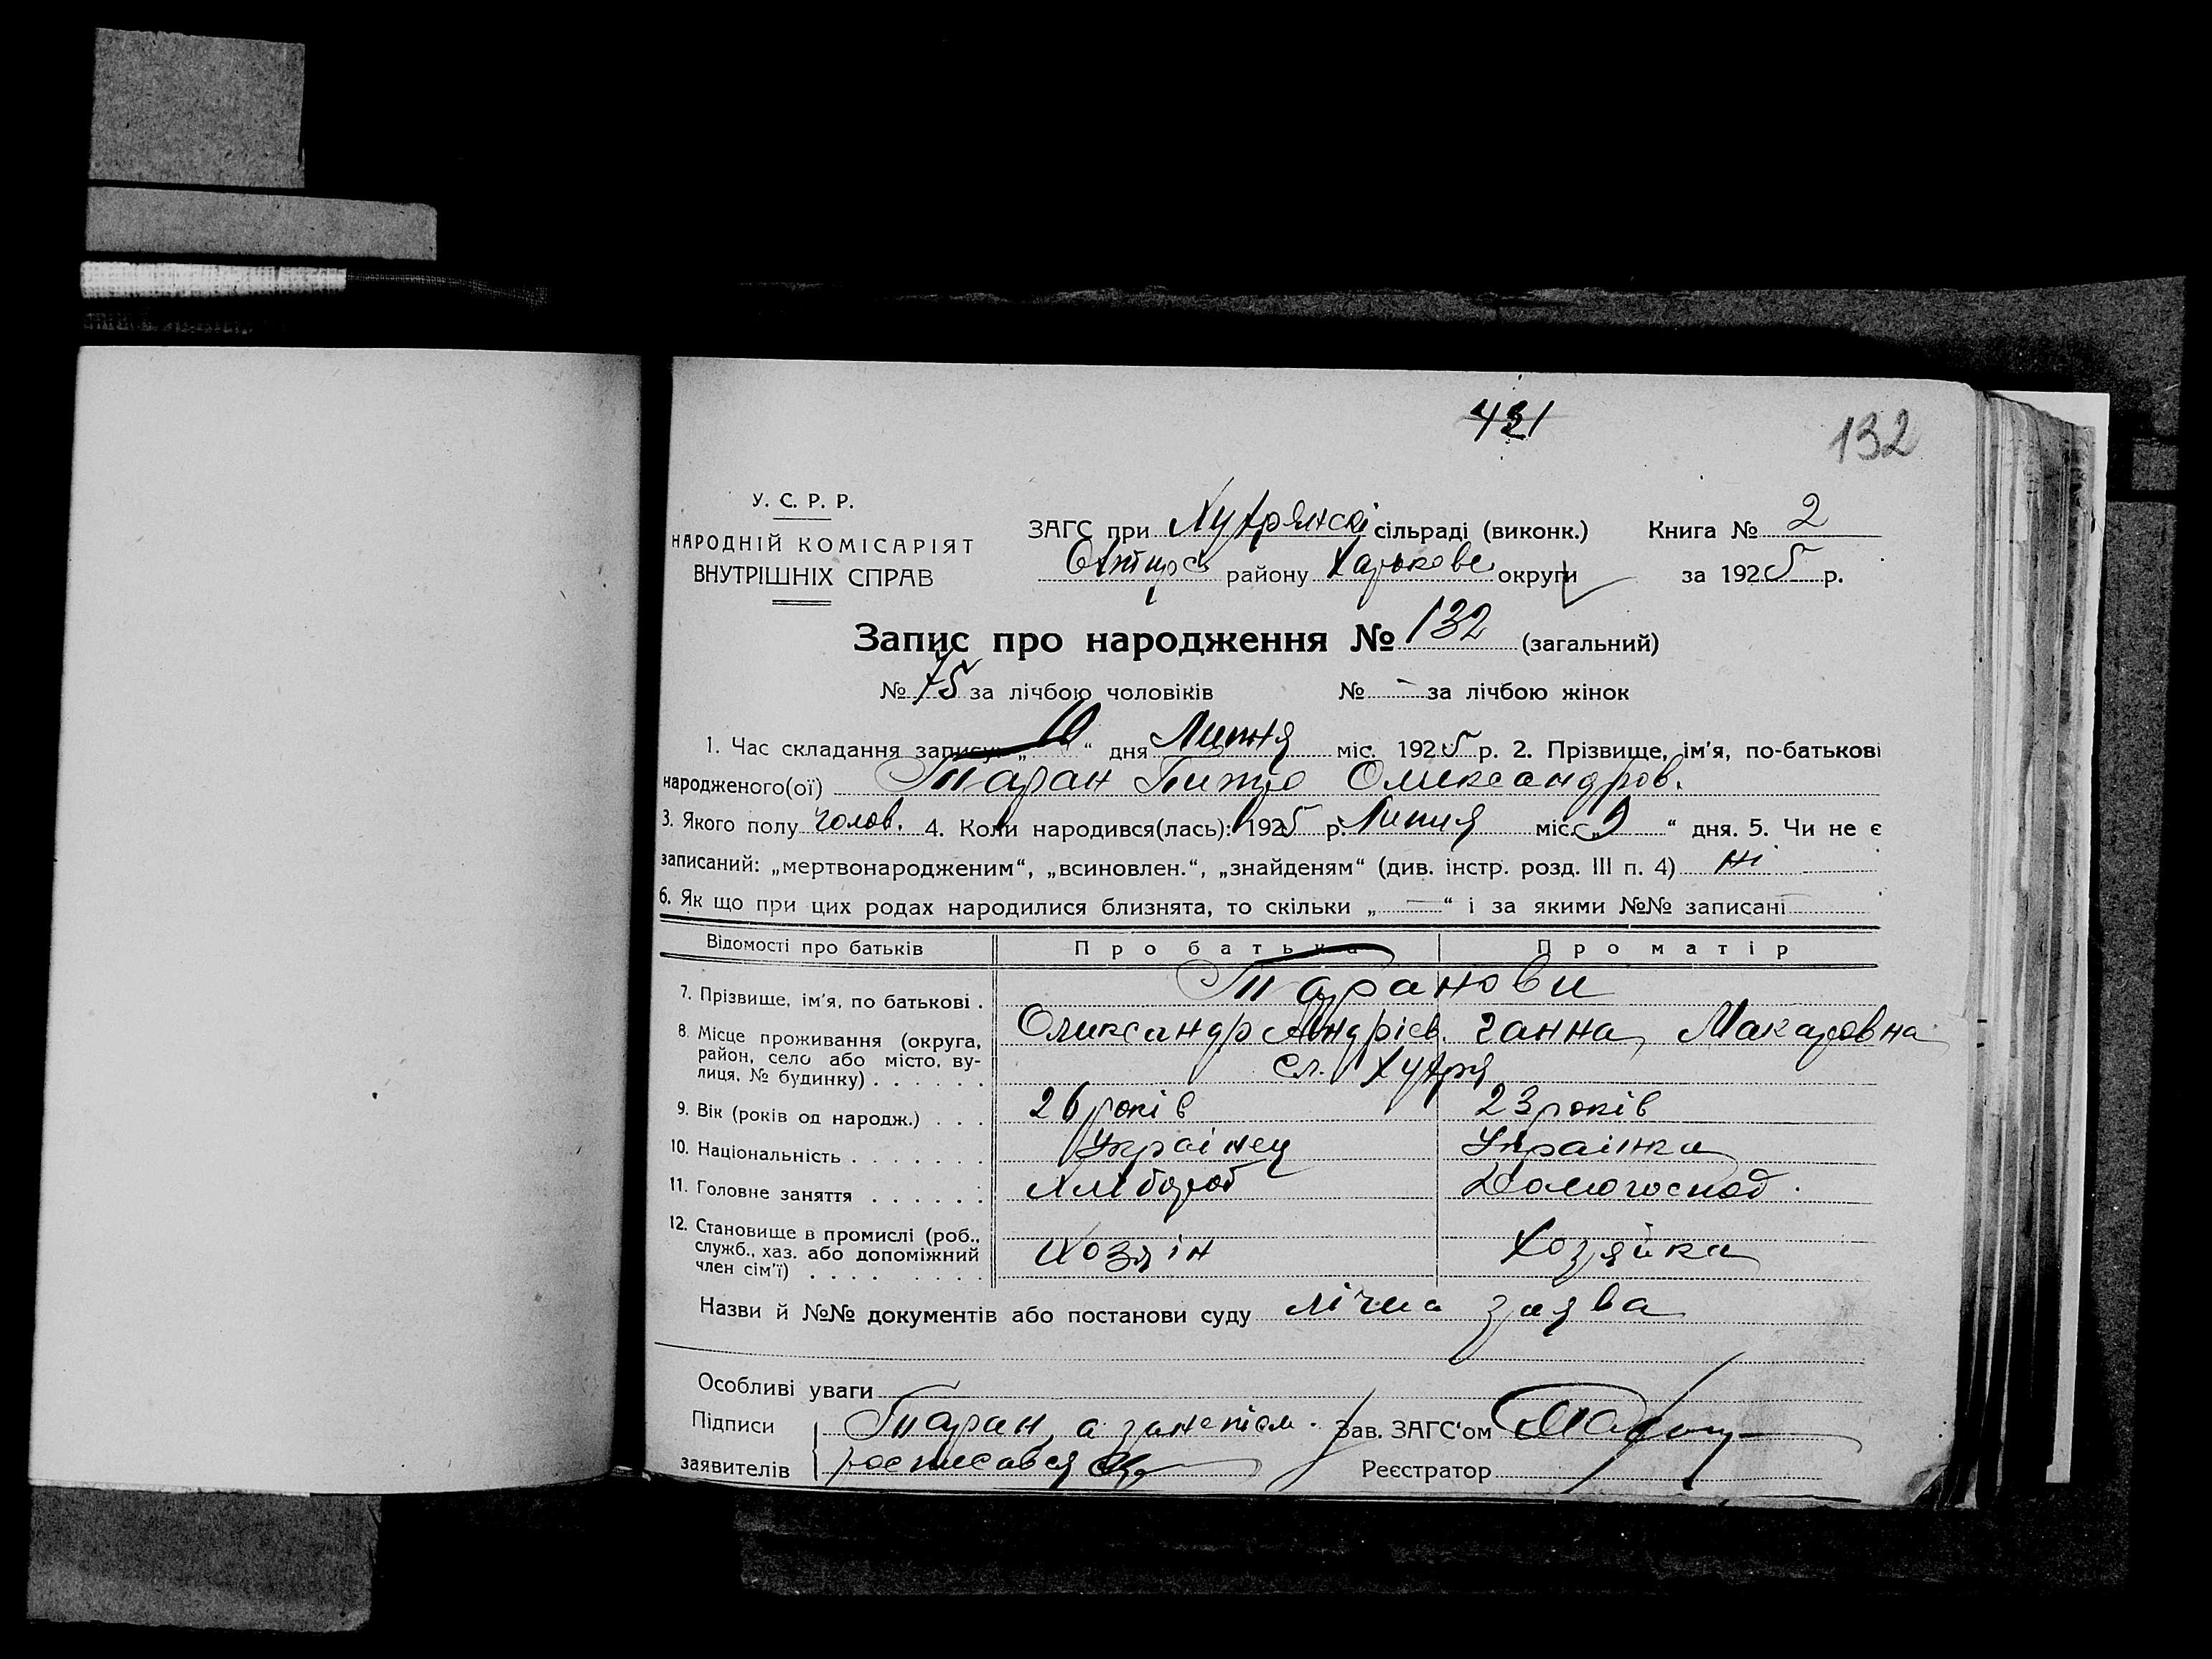 431
132
У. С. Р. Р.
НАРОДНІЙ КОМІСАРІЯТ
ВНУТРІШНІХ СПРАВ
ЗАГС при Хухрянскі сільраді (виконк.) Книга № 2
Охтирс району Харькове округи за 1925 р.
Запис про народження № 132 (загальний)
№ 75 за лічбою чоловіків № – за лічбою жінок
1. Час складання запису: „10“ дня Липня міс. 1925 р. 2. Прізвище, ім'я, по-батькові
народженого(ої) Таран Питро Олександров.
3. Якого полу чолов. 4. Коли народився(лась): 1925 р. Липня міс. „9“ дня. 5. Чи не є
записаний: „мертвонародженим“, „всиновлен.“, „знайденям“ (див. інстр. розд. III п. 4) ні
6. Як що при цих родах народилися близнята, то скільки „—“ і за якими №№ записані
Відомості про батьків Про батька Про матір
7. Прізвище, ім'я, по батькові . Таранови
8. Місце проживання (округа, район, село або місто, вулиця, № будинку) . . . . . . Олександр Андрієв. Ганна Макаровна
сл. Хухря
9. Вік (років од народж.) . . . 26 років 23 років
10. Національність . . . . . . . Українец Українка
11. Головне заняття . . . . . . Хлібороб Домогоспод.
12. Становище в промислі (роб., служб., хаз. або допоміжний член сім'ї) . . . . . . . . Хозяін Хозяйка
Назви й №№ документів або постанови суду лічна заява
Особливі уваги
Підписи Таран, а за Зав. ЗАГС'ом
заявителів росписався Реєстратор